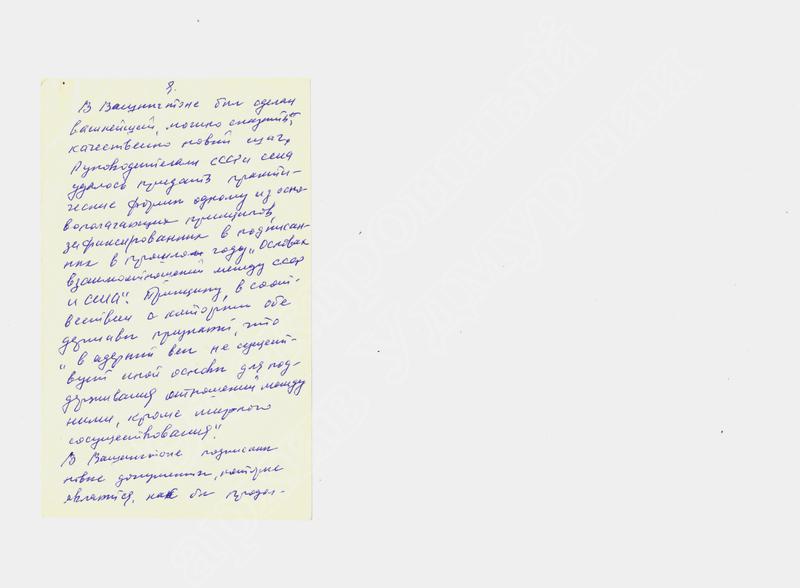 9.
В Вашингтоне был сделан
важнейший, можно сказать,
качественно новый шаг.
Руководителям СССР и США
удалось придать практи-
ческие формы одному из осно-
вополагающих принципов,
зафиксированных в подписан-
ных в прошлом году „Основах
взаимоотношений между СССР
и США“. Принципу, в соот-
ветствии с которым обе
державы признают, что
„в ядерный век не сущест-
вует иной основы для под-
держивания отношений между
ними, кроме мирного
сосуществования“.
В Вашингтоне подписаны
новые документы, которые
являются, как бы продол-